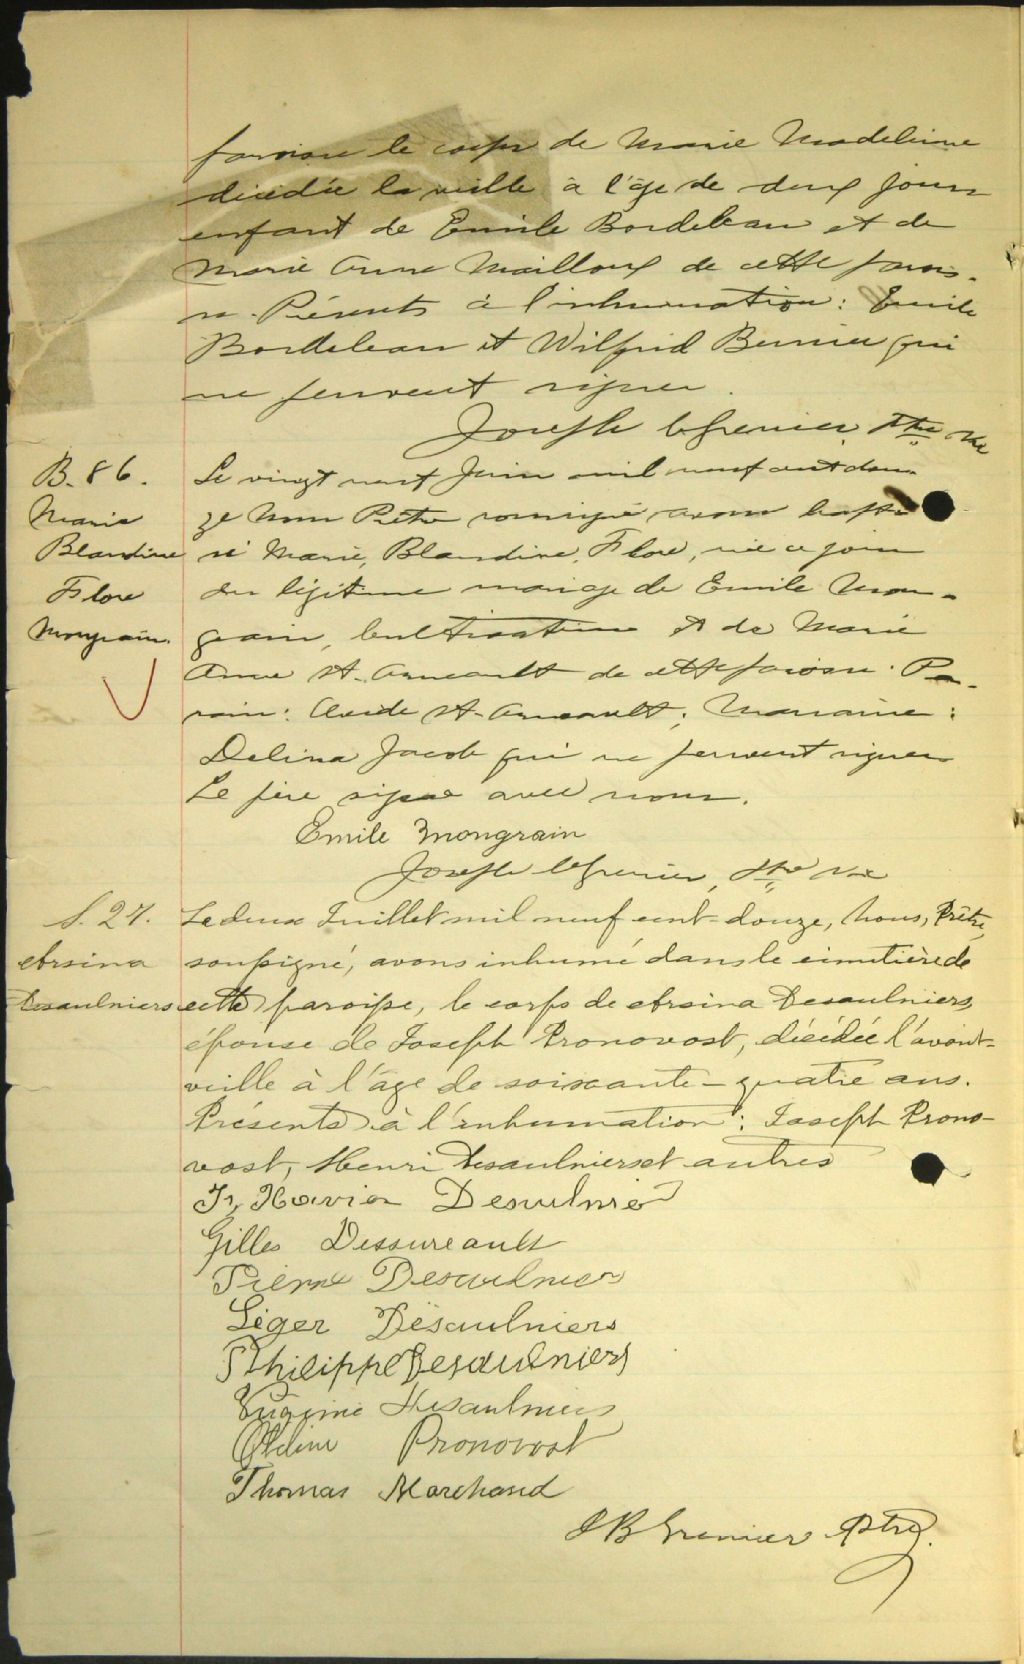 paroisse le corps de Marie Madeleine
décédée la veille à l'âge de deux jours
enfant de Emile Bordeleau et de
Marie Anne Mailloux de cette parois-
se. Présents à l'inhumation: Emile
Bordeleau et Wilfrid Bernier qui
ne peuvent signer.
Joseph Grenier Ptre Vic
B. 86.
Marie
Blandine
Flore
Mongrain.
Le vingt neuf Juin mil neuf cent dou-
ze nous Prêtre soussigné avons bapti
sé Marie, Blandine, Flore, née ce jour
du légitime mariage de Emile Mon-
grain, cultivateur et de Marie
Anne St-Arneault de cette paroisse. Pa-
rain: St-Arneault; Marraine:
Delina Jacob qui ne peuvent signer
Le père signe avec nous.
Emile Mongrain
Joseph Grenier, Ptre Vic
S. 27.
Arsina
Desaulniers
Le deux Juillet mil neuf cent-douze, Nous, Prêtre,
soussigné, avons inhumé dans le cimetière de
cette paroisse, le corps de Arsina Desaulniers,
épouse de Joseph Pronovost, décédée l'avant-
veille à l'âge de soixante-quatre ans.
Présents à l'inhumation: Joseph Prono-
vost, Henri Desaulniers et autres
Fr, Xavier Desaulnier
Gilles Dessureault
Pierre Desaulniers
Léger Désaulniers
Philippe Desaulniers
Eugénie Desaulniers
Pronovost
Thomas Marchand
J B Grenier Ptre.